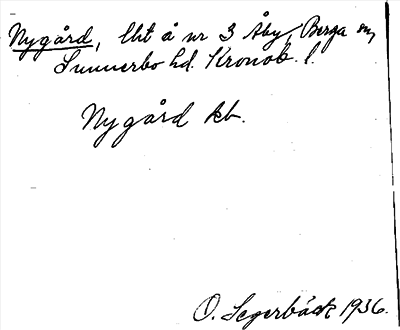 Nygård, lht å nr 3 Åby, Berga sn,
Sunnerbo hd. Kronob. l.
Nygård kb.
O. Segerbäck 1936.